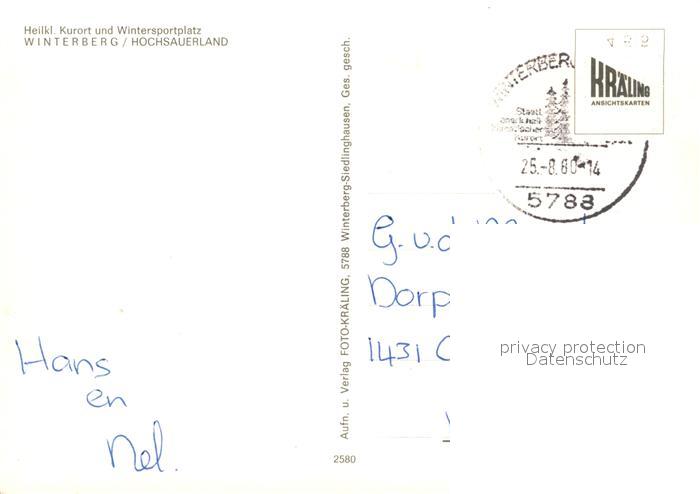 Heilkl. Kurort und Wintersportplatz
WINTERBERG / HOCHSAUERLAND
Hans
en
Nel.
Aufn. u. Verlag FOTO-KRÄLING, 5788 Winterberg-Siedlinghausen, Ges. gesch.
2580
WINTERBERG
Staatl.
Kurort
25.-8.80-14
5788
KRÄLING
ANSICHTSKARTEN
G. v. d
Dorp
1431 C
privacy protection
Datenschutz